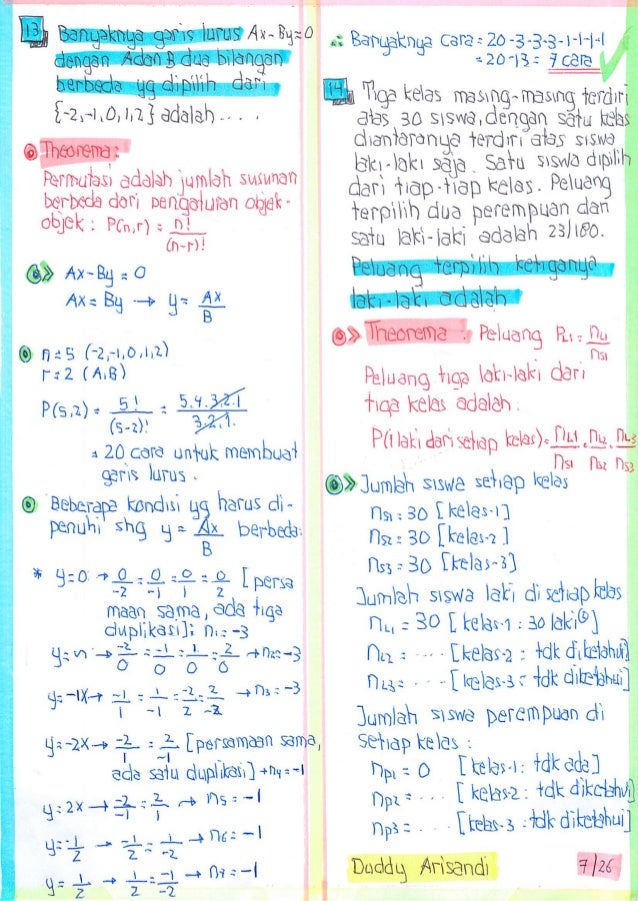 13 Banyaknya garis lurus Ax - By = 0
dengan A dan B dua bilangan
berbeda yg dipilih dari
{-2,-1,0,1,2} adalah ....
Theorema :
Permutasi adalah jumlah susunan
berbeda dari pengaturan objek-
objek : P(n,r) = n!
(n-r)!
Ax - By = 0
Ax = By → y = Ax
B
n = 5 (-2,-1,0,1,2)
r = 2 (A,B)
P(5,2) = 5! = 5.4.3.2.1
(5-2)! 3.2.1.
= 20 cara untuk membuat
garis lurus.
Beberapa kondisi yg harus di-
penuhi shg y = Ax berbeda:
B
* y=0 → 0 = 0 = 0 = 0 [persa
-2 -1 1 2
maan sama, ada tiga
duplikasi]; n1 = -3
→ -2 = -1 = 1 = 2 → n2 = -3
0 0 0 0
y=-1x → -1 = 1 = -2 = 2 → n3 = -3
1 -1 2 -2
y=-2x → -2 = 2 [persamaan sama,
1 -1
ada satu duplikasi] → n4 = -1
y=2x → -2 = 2 → n5 = -1
-1 1
y=-1 → -1 = 1 → n6 = -1
2 2 -2
y=1 → 1 = -1
2 2 -2
∴ Banyaknya cara = 20-3-3-3-1-1-1-1
= 20-13 = 7 cara
14. Tiga kelas masing-masing terdiri
atas 30 siswa, dengan satu kelas
diantaranya terdiri atas siswa
laki-laki saja. Satu siswa dipilih
dari tiap-tiap kelas. Peluang
terpilih dua perempuan dan
satu laki-laki adalah 23/180.
Peluang terpilih ketiganya
laki-laki adalah
Theorema : Peluang PL1 = nL1
nS1
Peluang tiga laki-laki dari
tiga kelas adalah :
P(1 laki dari setiap kelas) = nL1 . nL2 . nL3
nS1 nS2 nS3
Jumlah siswa setiap kelas
nS1 = 30 [kelas-1]
nS2 = 30 [kelas-2]
nS3 = 30 [kelas-3]
Jumlah siswa laki di setiap kelas
nL1 = 30 [kelas-1 : 30 laki²]
nL2 = .... [kelas-2 : tdk diketahui]
nL3 = .... [kelas-3 : tdk diketahui]
Jumlah siswa perempuan di
setiap kelas :
nP1 = 0 [kelas-1 : tdk ada]
nP2 = .... [kelas-2 : tdk diketahui]
nP3 = .... [kelas-3 : tdk diketahui]
Duddy Arisandi 7/26